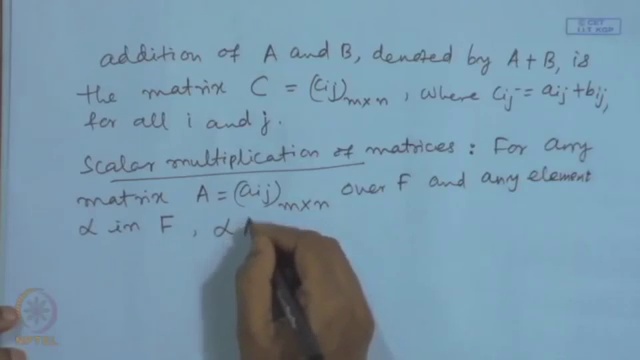 © CET
I.I.T. KGP
addition of A and B, denoted by A + B, is
the matrix C = (cij)m×n, where cij = aij + bij,
for all i and j.
Scalar multiplication of matrices : For any
matrix A = (aij)m×n over F and any element
α in F, α
NPTEL